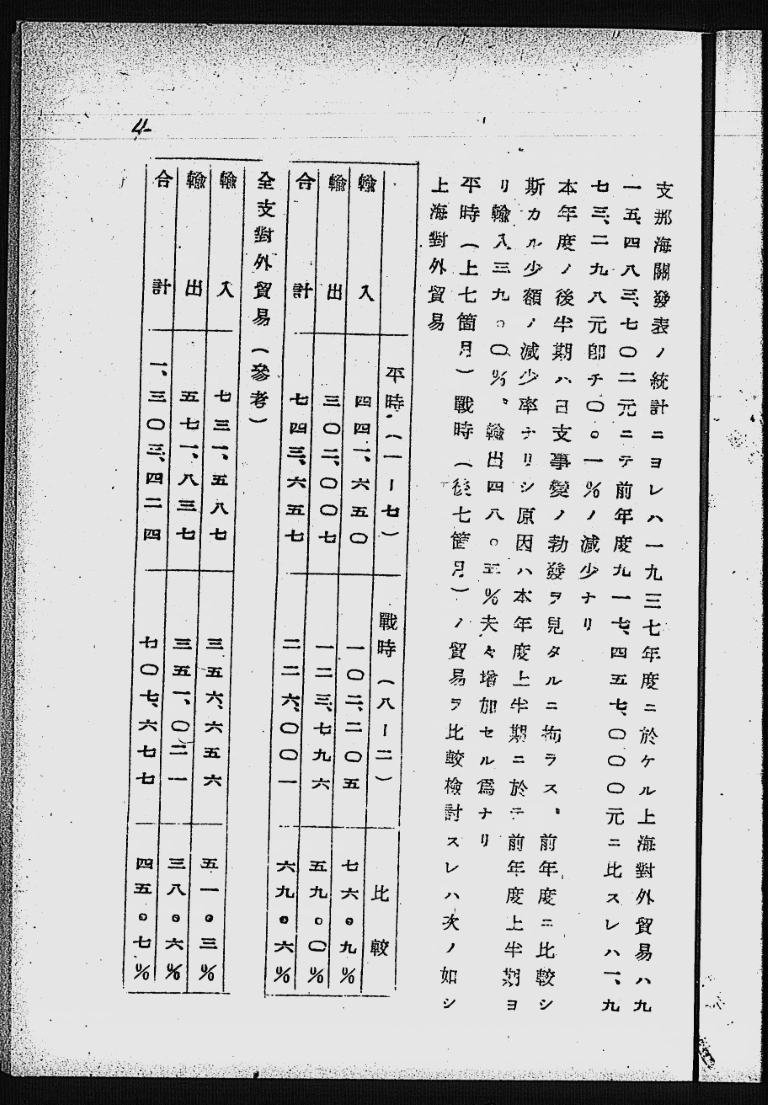 4
支那海關發表ノ統計ニヨレハ一九三七年度ニ於ケル上海對外貿易ハ九
一五、四八三、七〇二元ニテ前年度九一七、四五七、〇〇〇元ニ比スレハ一、九
七三、二九八元卽チ〇。一%ノ減少ナリ
本年度ノ後半期ハ日支事變ノ勃發ヲ見タルニ拘ラス、前年度ニ比較シ
斯カル少額ノ減少率ナリシ原因ハ本年度上半期ニ於テ前年度上半期ヨ
リ輸入三九。〇%、輸出四八。五%夫々增加セル爲ナリ
平時(上七箇月)戰時(後七箇月)ノ貿易ヲ比較檢討スレハ次ノ如シ
上海對外貿易
平時(一ー七) 戰時(八ー二) 比較
輸入 四四一、六五〇 一〇二、二〇五 七六。九%
輸出 三〇二、〇〇七 一二三、七九六 五九。〇%
合計 七四三、六五七 二二六、〇〇一 六九。六%
全支對外貿易(參考)
輸入 七三一、五八七 三五六、六五六 五一。三%
輸出 五七一、八三七 三五一、〇二一 三八。六%
合計 一、三〇三、四二四 七〇七、六七七 四五。七%